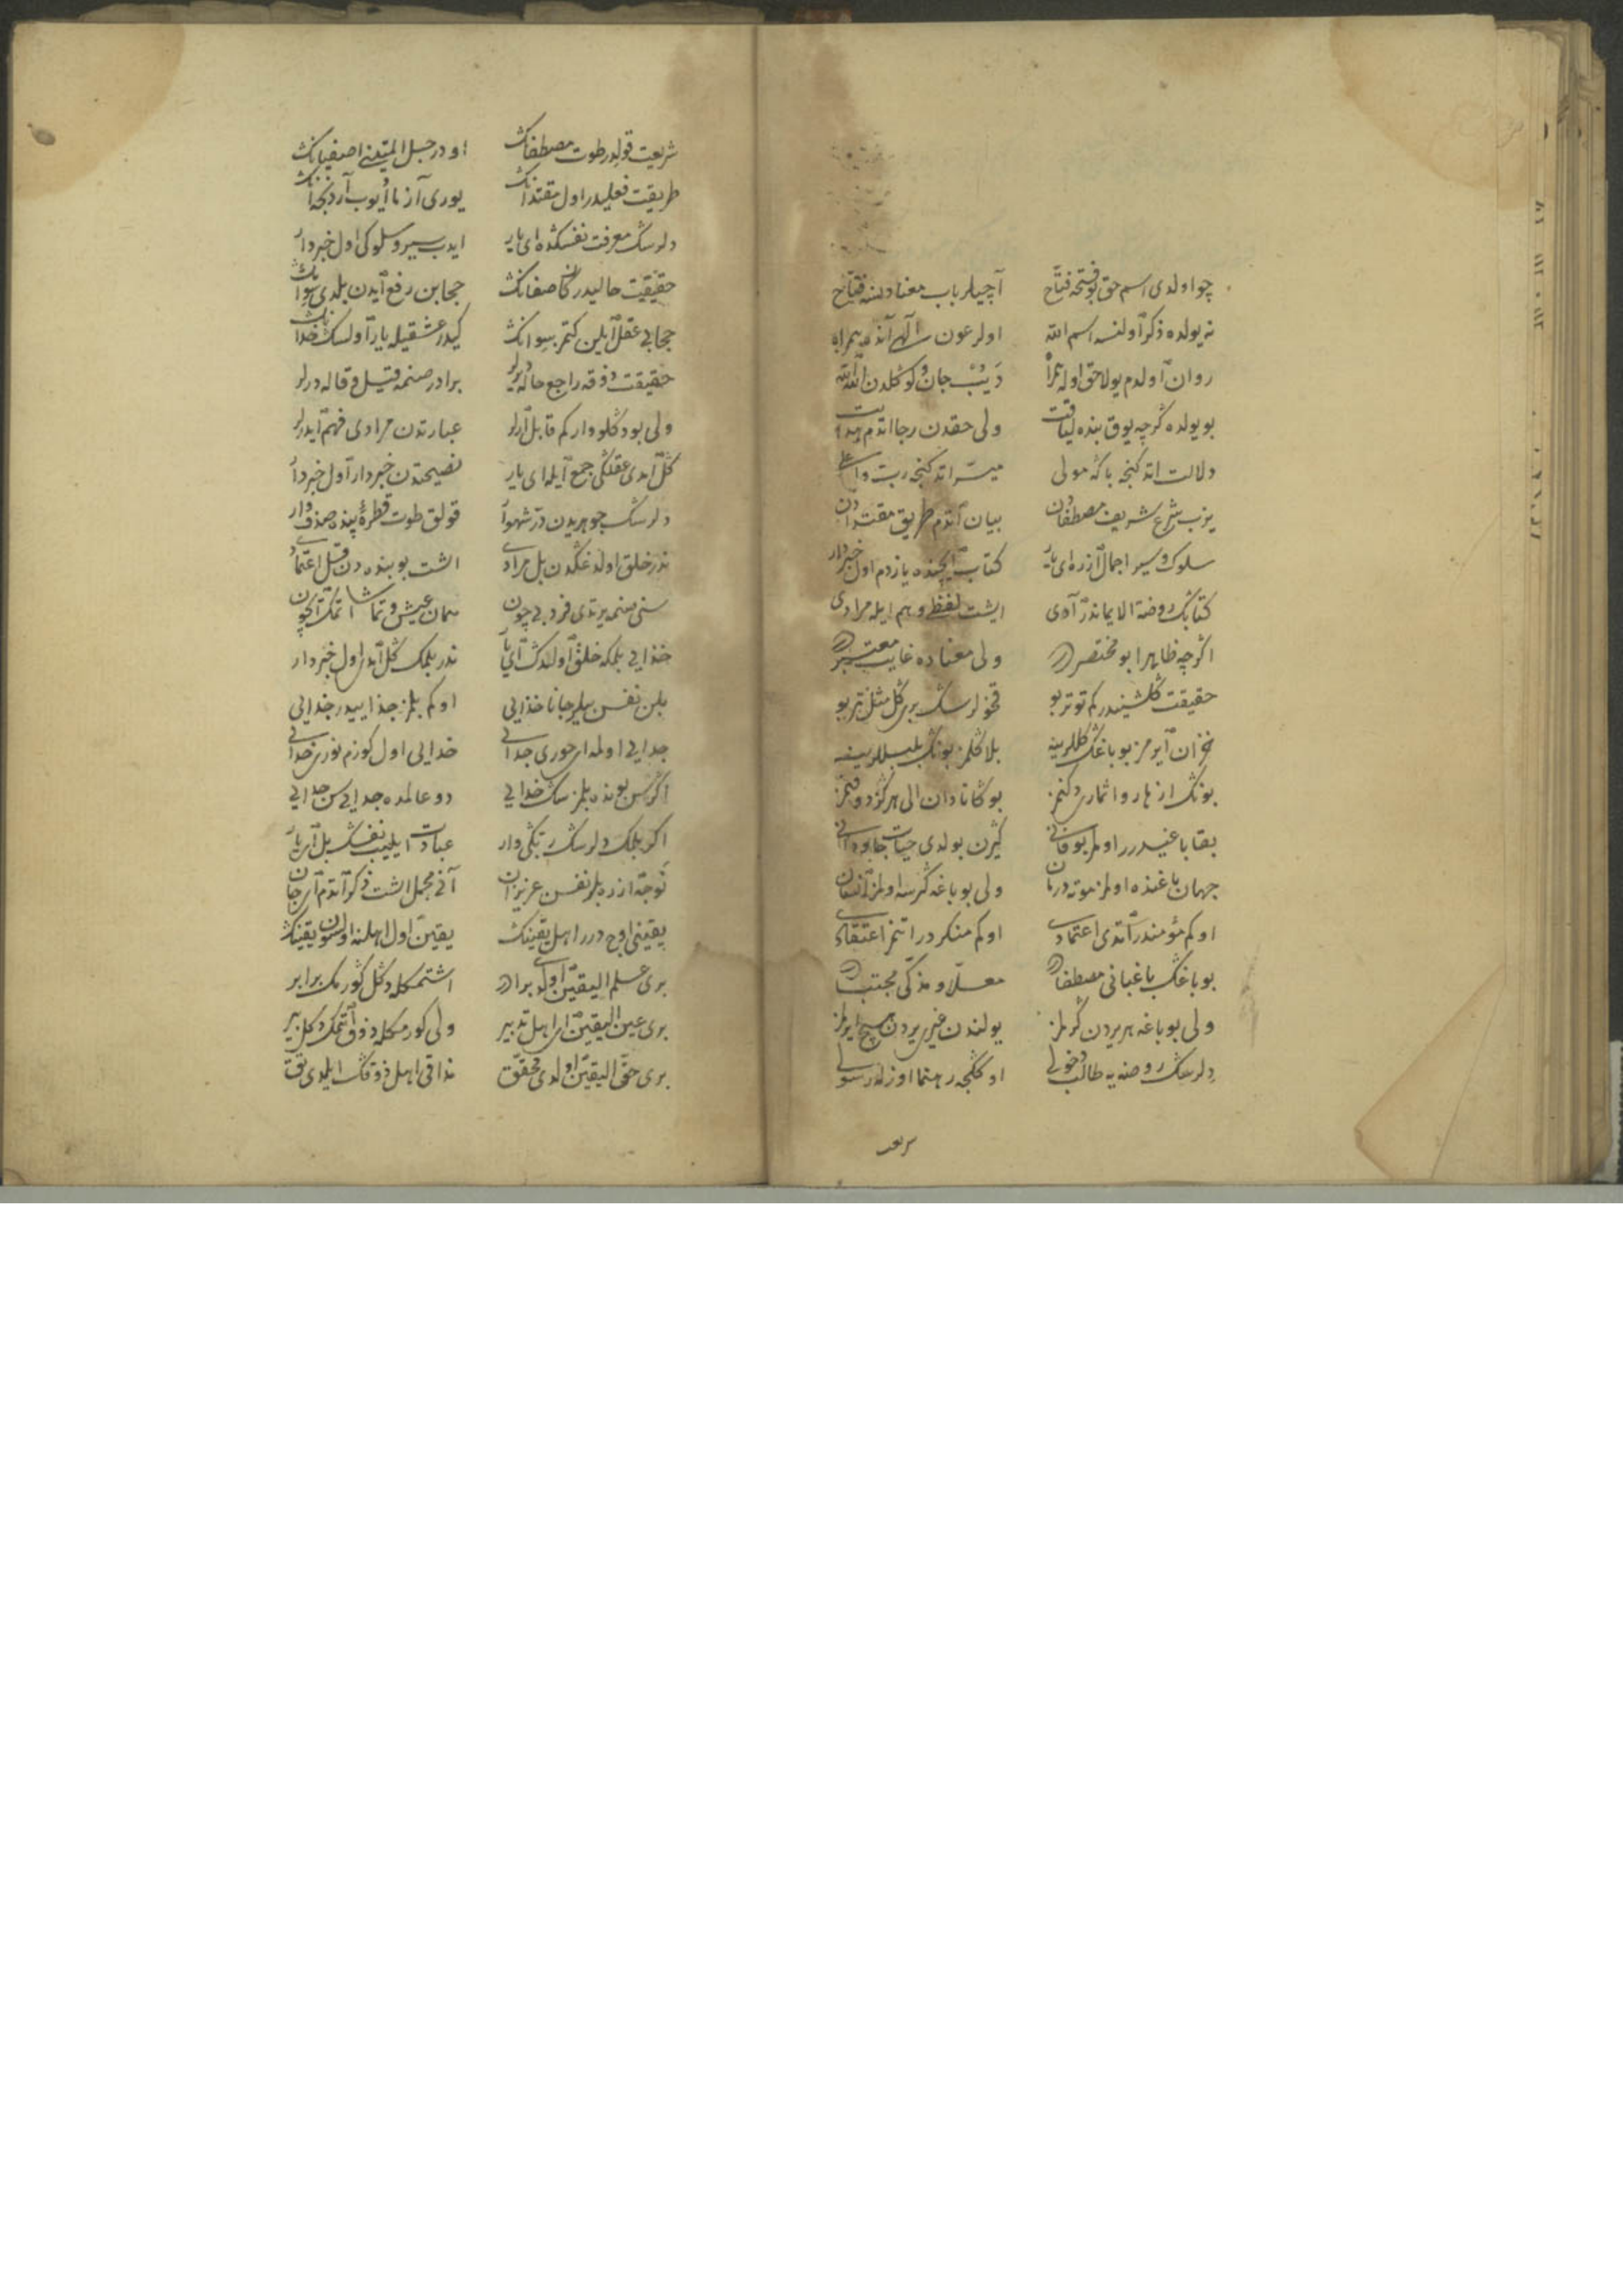 چو اولدی اسم حق بو فتحه فتاح آچیلر باب معنا دلنه فتاح
نه یولده ذکر اولنسه اسم الله اولر عون الهی آنده همراه
روان اولدم یولا حق اوله همرا دیب جان و کوکلدن الله الله
بو یولده گرچه یوق بنده لیاقت ولی حقدن رجا اتدم
دلالت اتد کنجه باکه مولی میسر اتد کنجه رب
یزب شرع شریف مصطفادن بیان اتدم طریق مقتدادن
سلوک و سیر اجمال ازره ای یار کتاب ایچنده یازدم اول خبردار
کتابک روضة الایماندر آدی ایشت لفظ و هم ایله مرادی
اگرچه ظاهرا بو مختصردر ولی معناده غایت معتبردر
حقیقت گلشنیدر کم توتر بو قخولرسک بر گل مثلن تیر بو
خزان ایرمز بو باغک گللرینه بلا گلمز بونک بلبللرینه
بونک ازهار و اثماری دکنمز بوکا نادان الی هرگز دوقنمز
بقا باغیدرر اولمز بو فانی گیرن بولدی حیات جاودانی
جهان باغنده اولمز موته درمان ولی بو باغه گرسه اولمز انسان
او کم مؤمندر اتدی اعتمادی او کم منکردر اتمز اعتقادی
بو باغک باغبانی مصطفادر معلا و مذکی مجتبادر
ولی بو باغه هر یردن گرلمز یولندن غیری یردن هیچ ایرلمز
دلرسک روضه یه طالب دخولی اوکنجه رهنما اوزله رسولی
شریعت قولدر طوت مصطفانک اودر حبل المتینی اصفیانک
طریقت فعلیدر اول مقتدانک یوری آزما ایوب آردنجه آنک
دلرسک معرفت نفسکده ای یار ایدب سیر و سلوکی اول خبردار
حقیقت حالیدر کان صفانک حجابن رفع ایدن بلدی سوانک
حجابی عقل ایلین کتمر سوانک گیدر عشقیله یار اولسک خدانک
حقیقت ذوقه راجع حاله دیرلر برادر صنمه قیل و قاله دیرلر
ولی بودکلو وار کم قابل ارلر عبارتدن مرادی فهم ایدرلر
گل امدی عقلکی جمع ایله ای یار نصیحتدن خبردار اول خبردار
دلرسک جوهریدن در شهوار قولق طوت قطرۀ پنده صدف وار
ندر خلق اولدغکدن بل مرادی اشت بو پنده دن قیل اعتمادی
سنی صنمه یرتدی فرد بی چون همان عیش و تماشا اتمک ایچون
خدایی بلمکه خلق اولدک ای یار ندر بلمک گل امدی اول خبردار
بلن نفسن بیلر جانا خدایی او کم بلمز جداییدر خدایی
جدایی اولمه ای حوری جدانی خدایی اول کوزم نوری خدانی
اگر سن بونده بلمزسک خدایی دو عالمده جدایی سن جدایی
اگر بلمک دلرسک ربکی وار عبادت ایلیب نفسک بل ای یار
توجه ازره بلر نفسن عزیزان آنی مجمل اشت ذکر اتدم ای جان
یقینی اوچ درر اهل یقینک یقین اول اهلنه اولسون یقینک
بری علم الیقین اولدی برادر اشتمکله دکل گورمک برابر
بری عین الیقین ای اهل تدبیر ولی کورمکله ذوق اتمک دکل بیر
بری حق الیقین اولدی محقق مذاقی اهل ذوقک ایلمدی